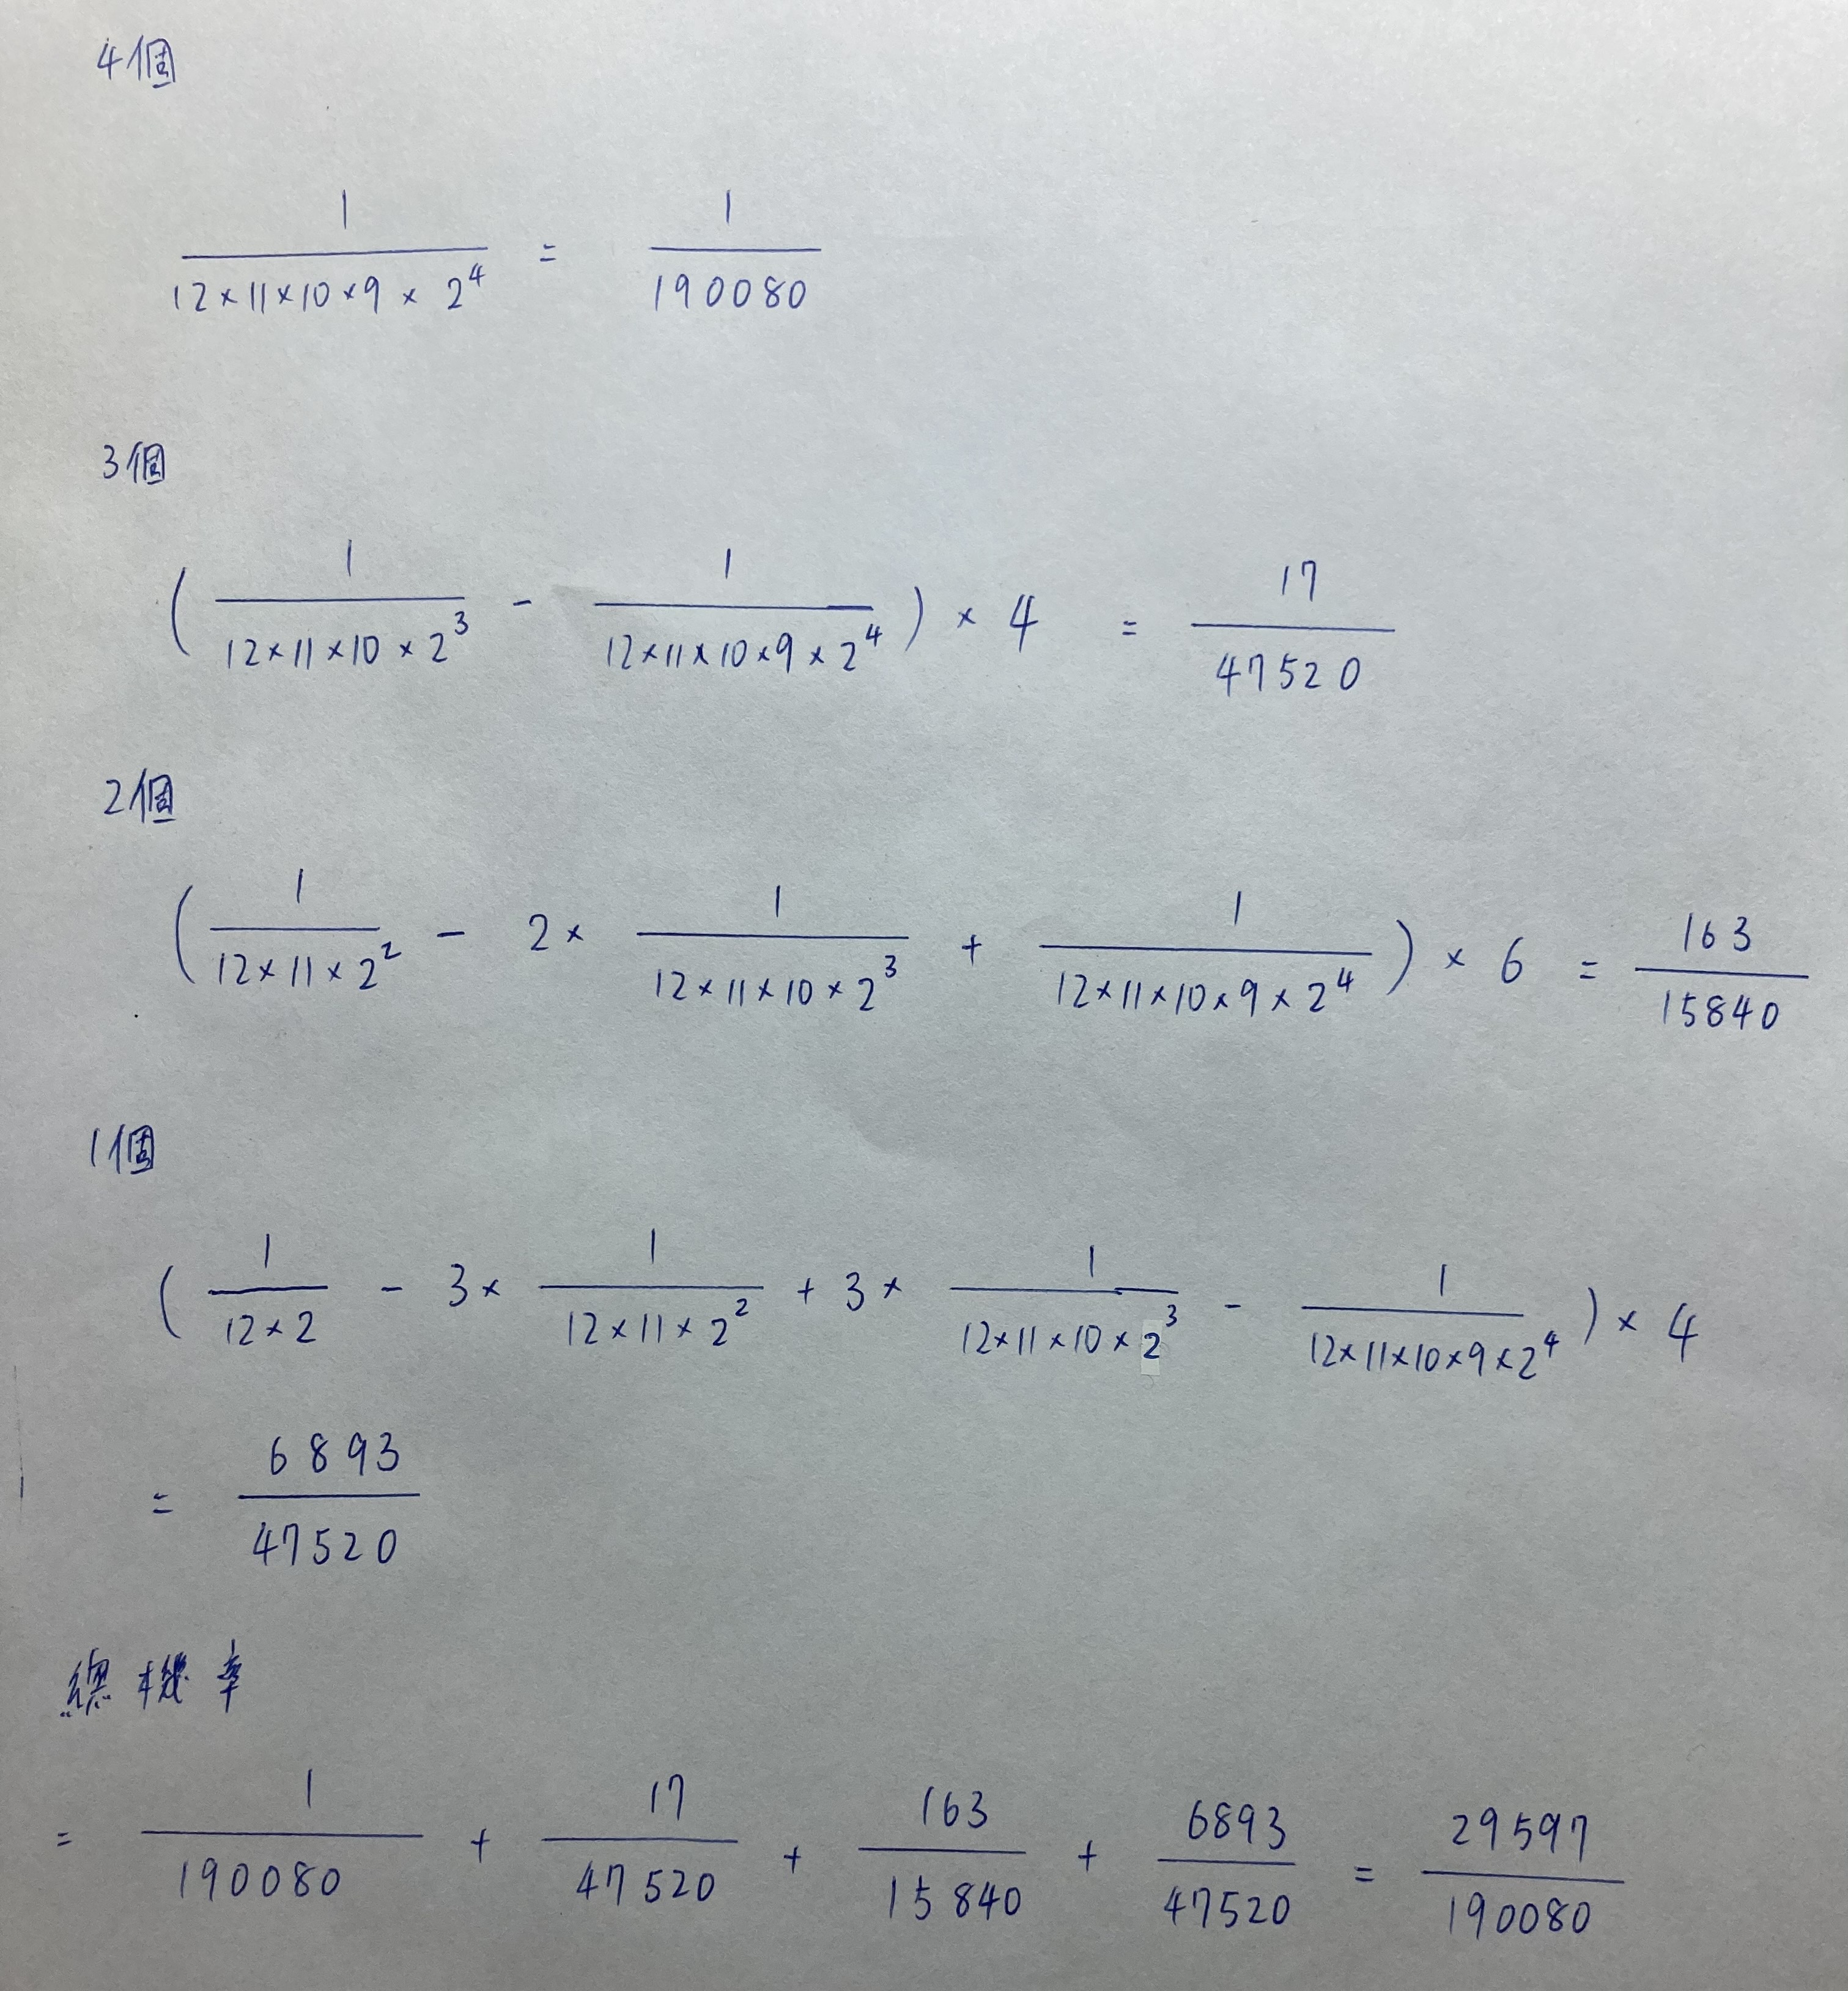 4個
1/(12×11×10×9×2^4) = 1/190080
3個
(1/(12×11×10×2^3) - 1/(12×11×10×9×2^4))×4 = 17/47520
2個
(1/(12×11×2^2) - 2×1/(12×11×10×2^3) + 1/(12×11×10×9×2^4))×6 = 163/15840
1個
(1/(12×2) - 3×1/(12×11×2^2) + 3×1/(12×11×10×2^3) - 1/(12×11×10×9×2^4))×4
= 6893/47520
總機率
= 1/190080 + 17/47520 + 163/15840 + 6893/47520 = 29597/190080